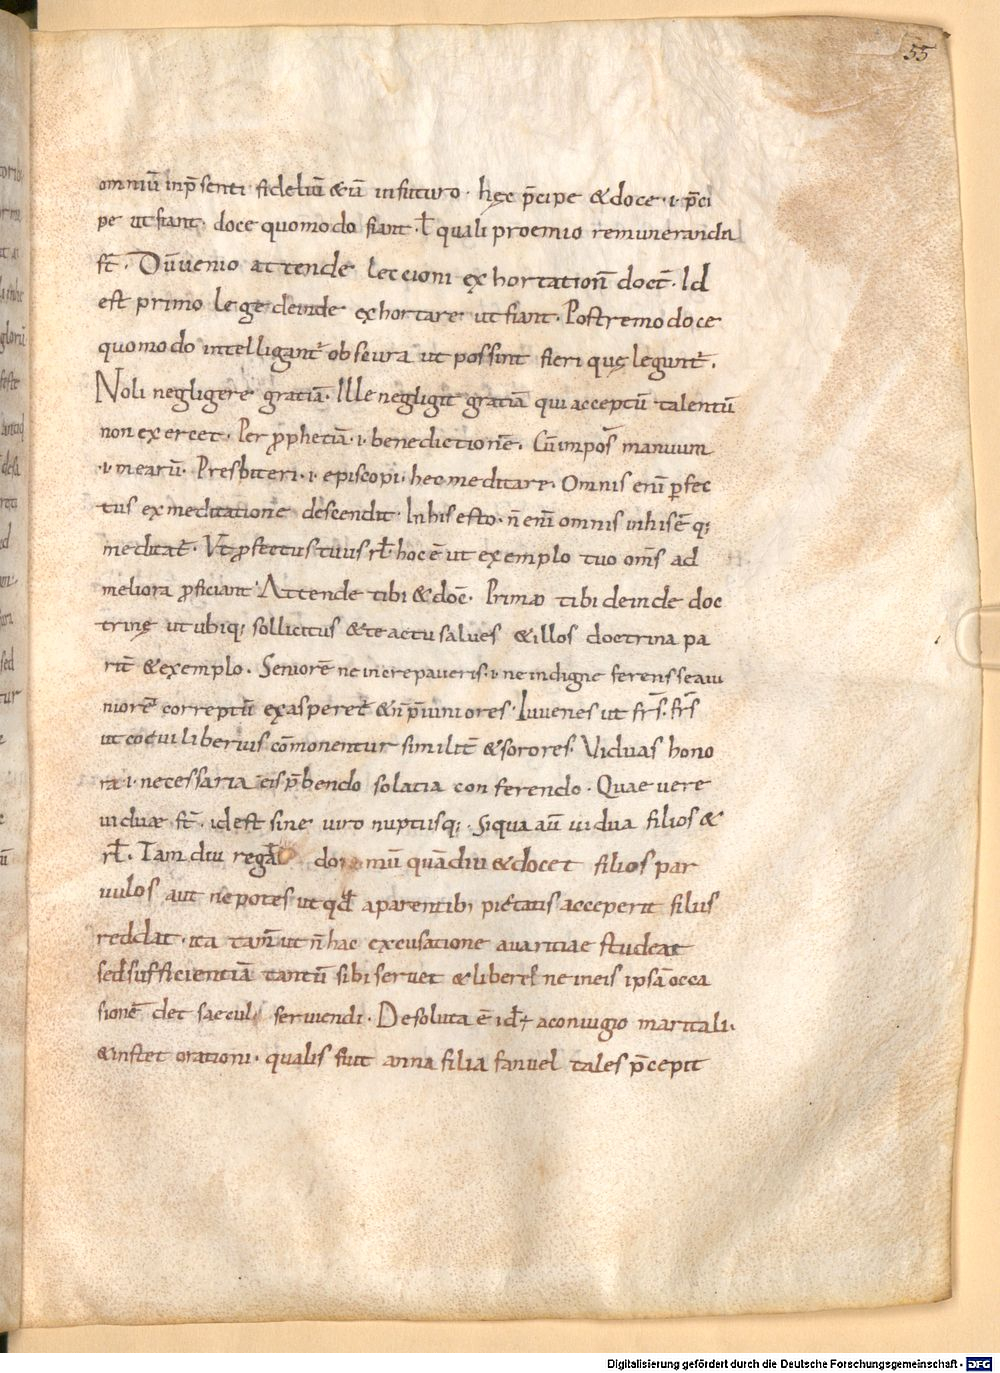 55
omniū inp̄senti fideliū &ū infuturo · hęc p̄cipe & doce · i · p̄ci
pe ut fiant · doce quomodo fiant · ł quali proemio remuneranda
st̄ · Dū uenio attende leccioni exhortationī docē · Id
est primo lege deinde exhortare ut fiant · Postremo doce
quomodo intelligant̄ obscura ut possint fieri quę legunt̄ .
Noli negligere gratiā · Ille negligit gratiā qui acceptū talentū
non exercet · Per p̄phetiā · i · benedictionē . Cū impoš manuum
· i · mearū · Presbiteri · i · episcopi · hec meditare · Omnis enī p̄fec
tus ex meditatione descendit · In his esto · n̄ enī omnis in his ē q;
meditat̄ · Vt p̄fectus tuus ił · hoc ē ut exemplo tuo om̄s ad
meliora p̄ficiant · Attende tibi & doc̄ · Primo tibi deinde doc
trinę ut ubiq; sollicitus & te actu salues & illos doctrina pa
rit̄ & exemplo . Seniorē ne increpaueris · i · ne indigne ferens se a iu
niore correptū exasperet̄ & n̄ p̄ iuniores · Iuuenes ut fr̄s · fr̄s
ut coeui liberius cōmonentur similit̄ & sorores · Viduas hono
ra · i · necessaria eis p̄bendo solacia conferendo · Quae uere
uiduæ st̄ · id est sine uiro nuptusq; · Siqua aū uidua filios &
rł · Tam diu regat domū quādiu & docet filios par
uulos aut nepotes ut qd̄ a parentib; pietatis acceperit filiis
reddat · ita tam̄ ut n̄ hac excusatione auaritiae studeat
sed sufficientiā tantū sibi seruet & liberis ne in eis ipsā occa
sionē det saeculo seruiendi · Desoluta ē id ÷ a coniugio maritali ·
& instet orationi · qualis fuit anna filia fanuel tales p̄cepit
Digitalisierung gefördert durch die Deutsche Forschungsgemeinschaft - DFG